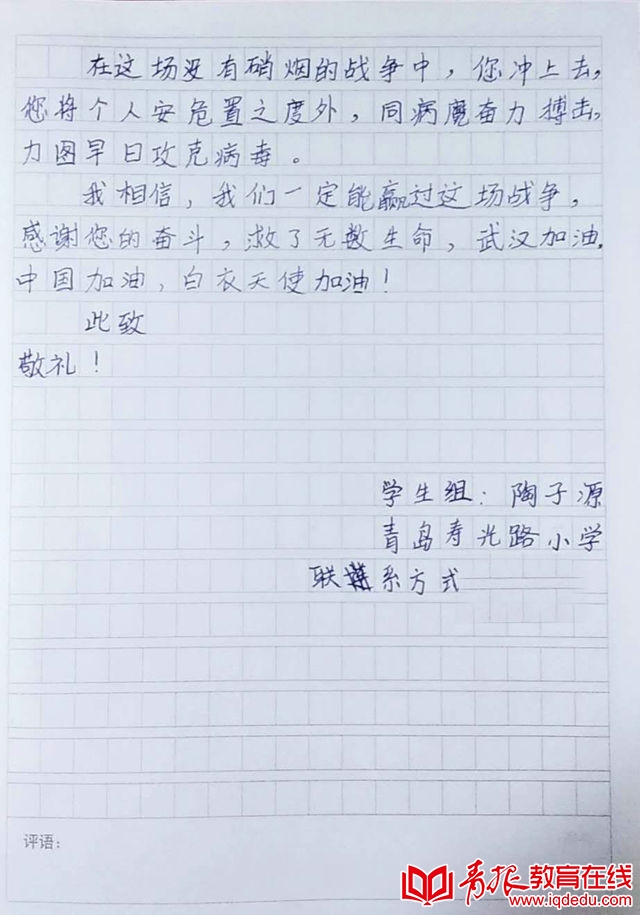 在这场没有硝烟的战争中，您冲上去，
您将个人安危置之度外，同病魔奋力搏击，
力图早日攻克病毒。
我相信，我们一定能赢过这场战争，
感谢您的奋斗，救了无数生命，武汉加油，
中国加油，白衣天使加油！
此致
敬礼！
学生组：陶子源
青岛寿光路小学
联系方式
评语：
青报教育在线
www.iqdedu.com